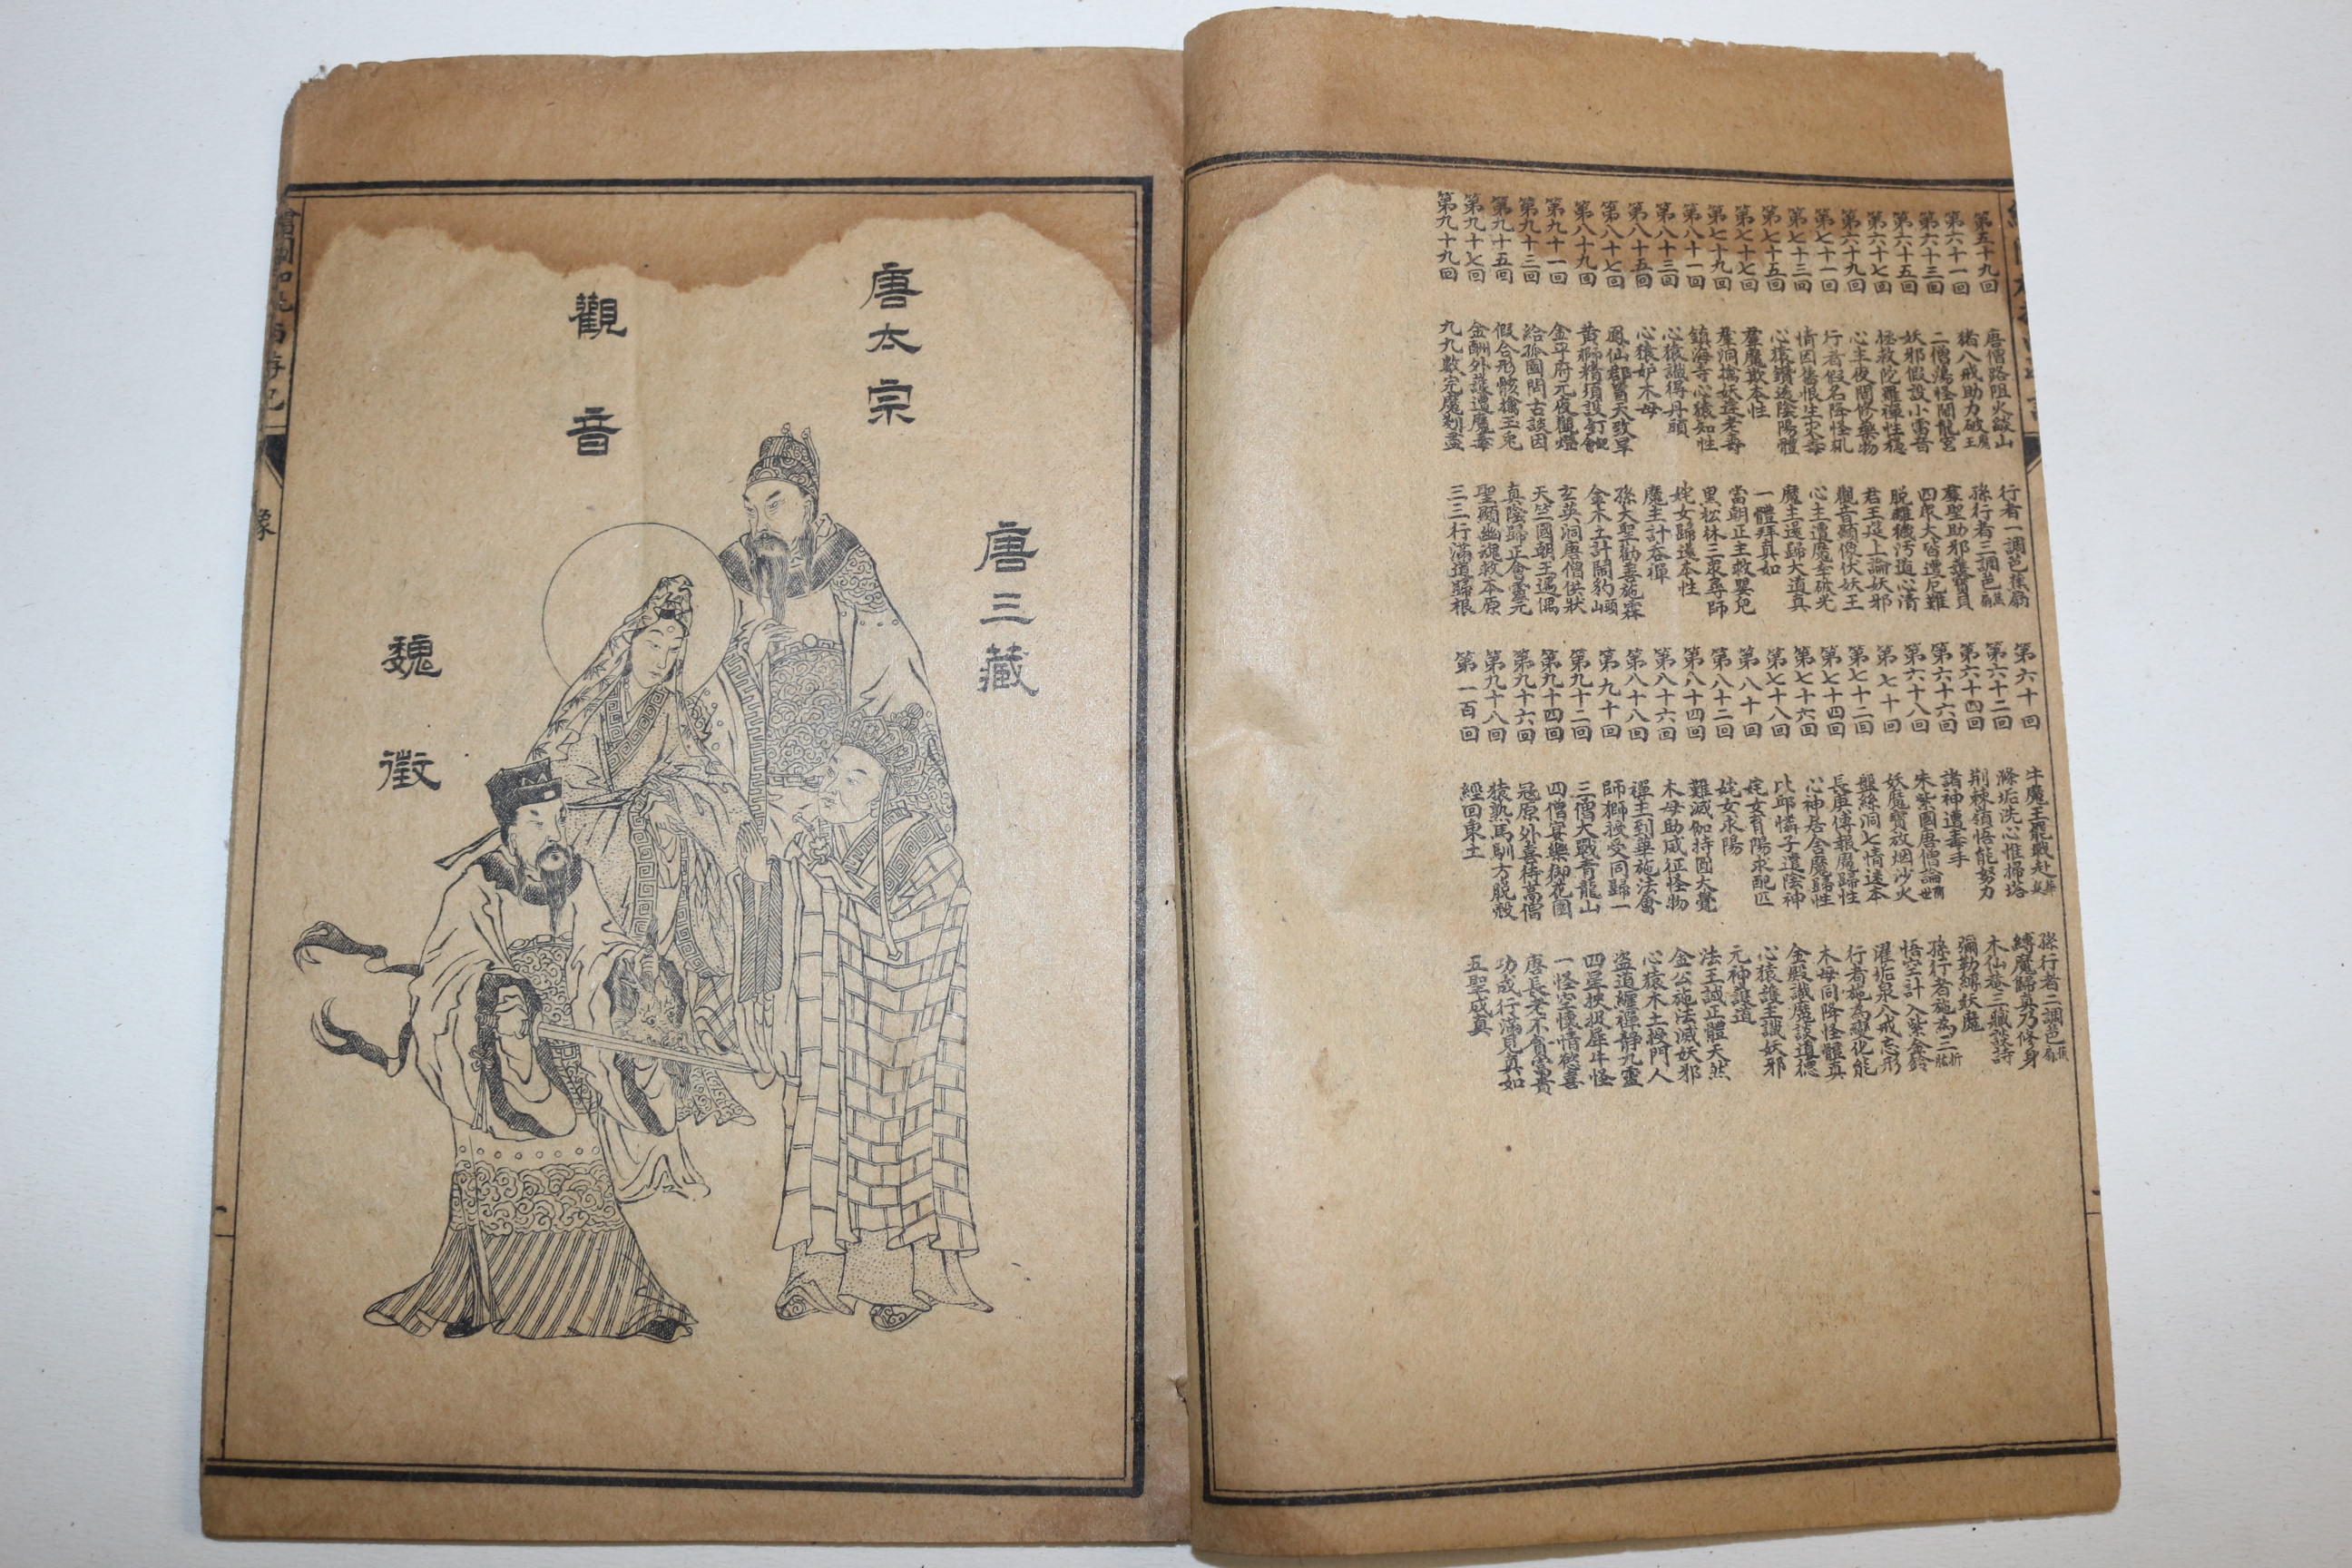 第五十九回 唐僧路阻火燄山 行者一調芭蕉扇 第六十回 牛魔王罷戰赴華筵 孫行者二調芭蕉扇
第六十一回 猪八戒助力破魔王 孫行者三調芭蕉扇 第六十二回 滌垢洗心惟掃塔 縛魔歸真乃修身
第六十三回 二僧蕩怪鬧龍宮 羣聖助邪護寶貝 第六十四回 荆棘嶺悟能努力 木仙菴三藏談詩
第六十五回 妖邪假設小雷音 四眾大皆遭厄難 第六十六回 諸神遭毒手 彌勒縛妖魔
第六十七回 拯救陀羅禪性穩 脫離穢污道心清 第六十八回 朱紫國唐僧論前世 孫行者施為三折肱
第六十九回 心主夜間修藥物 君王筵上論妖邪 第七十回 妖魔寶放烟沙火 悟空計入紫金鈴
第七十一回 行者假名降怪犼 觀音顯像伏妖王 第七十二回 盤絲洞七情迷本 濯垢泉八戒忘形
第七十三回 情因舊恨生災毒 心主遭魔幸破光 第七十四回 長庚傳報魔歸性 行者施為變化能
第七十五回 心猿鑽透陰陽體 魔主還歸大道真 第七十六回 心神居舍魔歸性 木母同降怪體真
第七十七回 羣魔欺本性 一體拜真如 第七十八回 比邱憐子遣陰神 金殿識魔談道德
第七十九回 尋洞擒妖逢老壽 當朝正主救嬰兒 第八十回 姹女育陽求配匹 心猿護主識妖邪
第八十一回 鎮海寺心猿知性 黑松林三眾尋師 第八十二回 姹女求陽 元神護道
第八十三回 心猿識得丹頭 姹女歸還本性 第八十四回 難滅伽持圓大覺 法王誠正體天然
第八十五回 心猿妒木母 魔主計吞禪 第八十六回 木母助威征怪物 金公施法滅妖邪
第八十七回 鳳仙郡冒天致旱 孫大聖勸善施霖 第八十八回 禪主到華施法會 心猿木土授門人
第八十九回 黃獅精須設釘鈀會 金木土計鬧豹頭山 第九十回 師獅授受同歸一 盜道纏禪靜九靈
第九十一回 金平府元夜觀燈 玄英洞唐僧供狀 第九十二回 三僧大戰青龍山 四星挾捉犀牛怪
第九十三回 給孤園問古談因 天竺國朝王遇偶 第九十四回 四僧宴樂御花園 一怪空懷情慾喜
第九十五回 假合形骸擒玉兔 真陰歸正會靈元 第九十六回 冦原外喜待高僧 唐長老不貪富貴
第九十七回 金酬外護遭魔毒 聖顯幽魂救本原 第九十八回 猿熟馬馴方脫殼 功成行滿見真如
第九十九回 九九數完魔剗盡 三三行滿道歸根 第一百回 經回東土 五聖成真
唐三藏
唐太宗
觀音
魏徵
繪圖加批西遊記 像